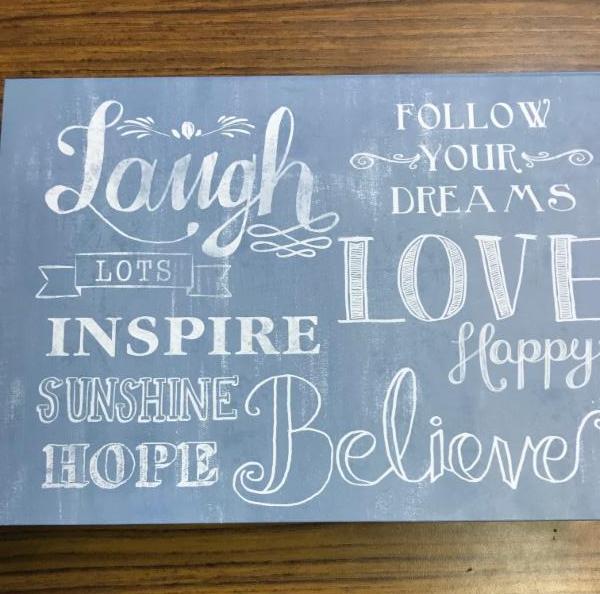 Laugh
LOTS
INSPIRE
SUNSHINE
HOPE
FOLLOW
YOUR
DREAMS
LOVE
Happy
Believe